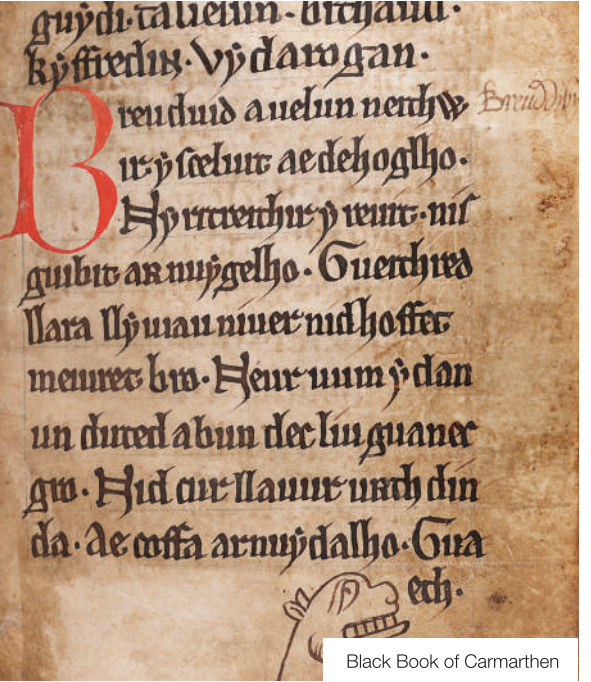 guẏdi· talieſſin·
kẏffredin· Vẏ darogan·
Breuduid a uelun neithwir
ẏ ſceluir ae dehoglho·
Nẏ ritreithir ẏ reuit· niſ
guibit ar nuẏ gelho· Gueithred
llara llẏuiau niuer nid hoffet
meiuret bro· Neur uum ẏ dan
un duted a bun dec liu guanec
gro· Nid cur llauur urth din
da· Ae coffa ar nuẏ dalho· Gua
eth·
Black Book of Carmarthen